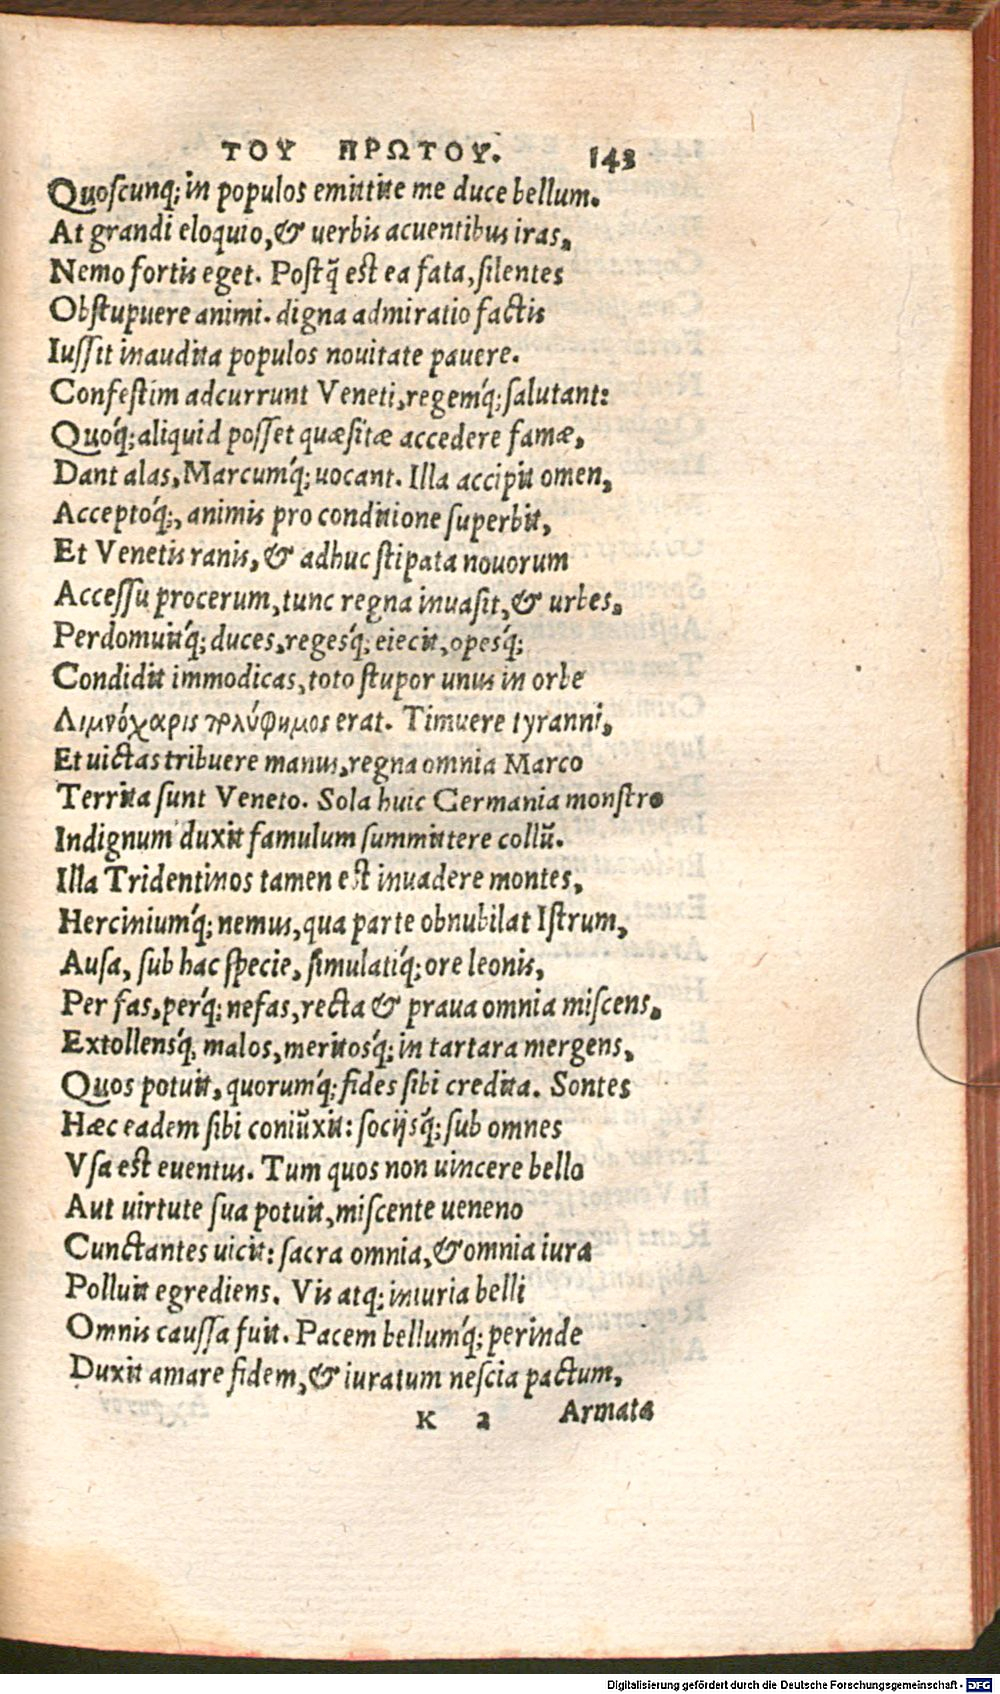 ΤΟΥ ΠΡΩΤΟΥ. 143
Quoscunq; in populos emittite me duce bellum.
At grandi eloquio, & uerbis acuentibus iras,
Nemo fortis eget. Postq̃ est ea fata, silentes
Obstupuere animi. digna admiratio factis
Iussit inaudita populos nouitate pauere.
Confestim adcurrunt Veneti, regemq́; salutant:
Quoq́; aliquid posset quæsitæ accedere famæ,
Dant alas, Marcumq́; uocant. Illa accipit omen,
Acceptoq́;, animis pro conditione superbit,
Et Venetis ranis, & adhuc stipata nouorum
Accessu procerum, tunc regna inuasit, & urbes,
Perdomuitq́; duces, regesq́; eiecit, opesq́;
Condidit immodicas, toto stupor unus in orbe
Λιμνόχαρις πολύφημος erat. Timuere tyranni,
Et uictas tribuere manus, regna omnia Marco
Territa sunt Veneto. Sola huic Germania monstro
Indignum duxit famulum summittere collũ.
Illa Tridentinos tamen est inuadere montes,
Herciniumq́; nemus, qua parte obnubilat Istrum,
Ausa, sub hac specie, simulatiq́; ore leonis,
Per fas, perq́; nefas, recta & praua omnia miscens,
Extollensq́; malos, meritosq́; in tartara mergens,
Quos potuit, quorumq́; fides sibi credita. Sontes
Hæc eadem sibi coniũxit: socijsq́; sub omnes
Vsa est euentus. Tum quos non uincere bello
Aut uirtute sua potuit, miscente ueneno
Cunctantes uicit: sacra omnia, & omnia iura
Polluit egrediens. Vis atq; iniuria belli
Omnis caussa fuit. Pacem bellumq́; perinde
Duxit amare fidem, & iuratum nescia pactum,
K 2 Armata
Digitalisierung gefördert durch die Deutsche Forschungsgemeinschaft - DFG